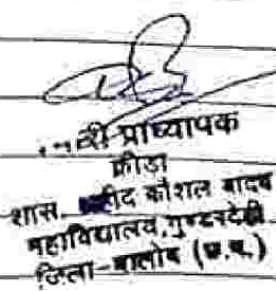 प्राध्यापक
क्रीडा
शास. शहीद कौशल यादव
महाविद्यालय, गुण्डरदेही
जिला-बालोद (छ.ग.)